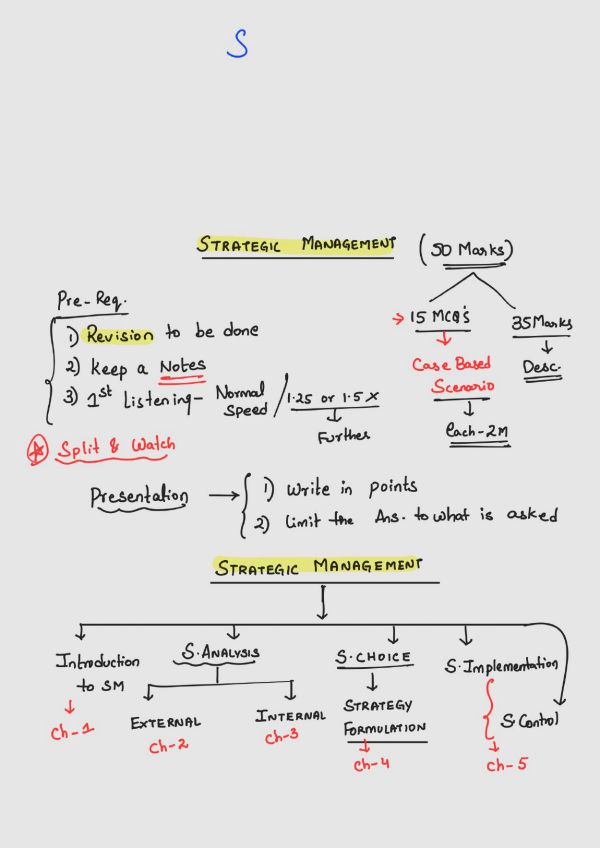 S
STRATEGIC MANAGEMENT (50 Marks)
Pre-Req.
1) Revision to be done
2) Keep a Notes
3) 1st Listening- Normal Speed / 1.25 or 1.5 X
Further
Split & Watch
→ 15 MCQ's
Case Based
Scenario
Each-2M
35 Marks
Desc.
Presentation → 1) Write in points
2) Limit the Ans. to what is asked
STRATEGIC MANAGEMENT
Introduction
to SM
Ch-1
S.ANALYSIS
EXTERNAL
Ch-2
INTERNAL
Ch-3
S.CHOICE
STRATEGY
FORMULATION
Ch-4
S.Implementation
S.Control
Ch-5